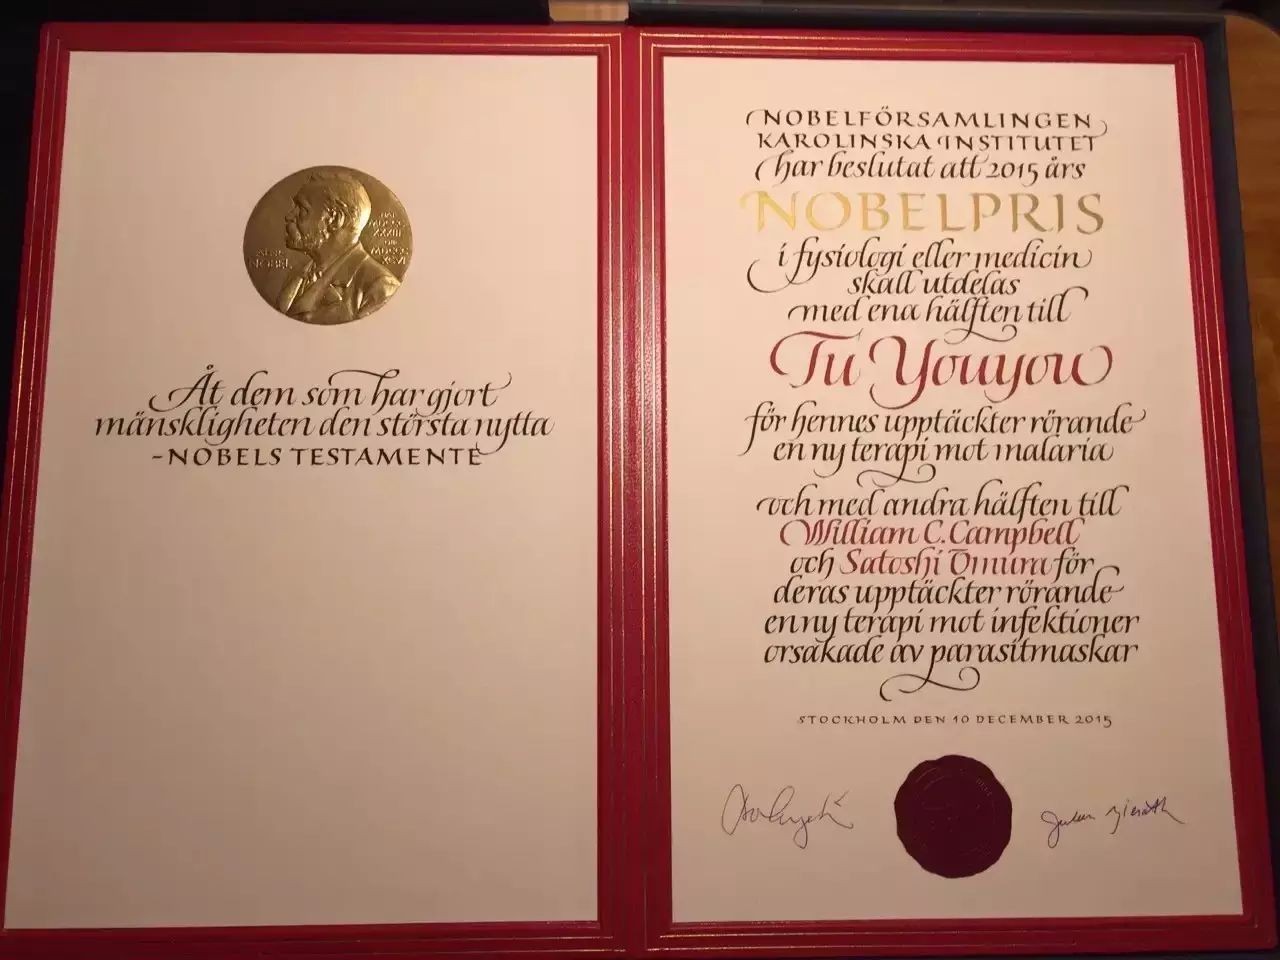 ALFR.
NOBEL
NAT.
MDCCC
XXXIII
OB.
MDCCC
XCVI
Åt dem som har gjort
mänskligheten den största nytta
-NOBELS TESTAMENTE
NOBELFÖRSAMLINGEN
KAROLINSKA INSTITUTET
har beslutat att 2015 års
NOBELPRIS
i fysiologi eller medicin
skall utdelas
med ena hälften till
Tu Youyou
för hennes upptäckter rörande
en ny terapi mot malaria
och med andra hälften till
William C. Campbell
och Satoshi Ōmura för
deras upptäckter rörande
en ny terapi mot infektioner
orsakade av parasitmaskar
STOCKHOLM DEN 10 DECEMBER 2015